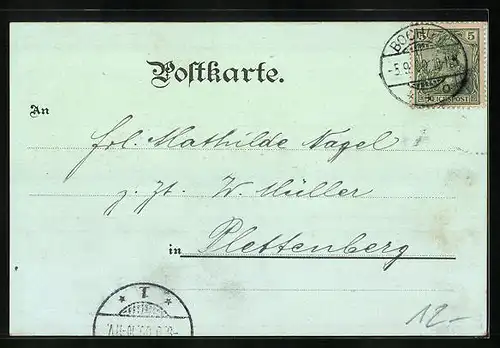 Postkarte.
BOCH
-5.9.
5
REICHSPOST
An
Frl. Mathilde Nagel
z. Zt. W. Müller
in Plettenberg
* 1 *
12.-